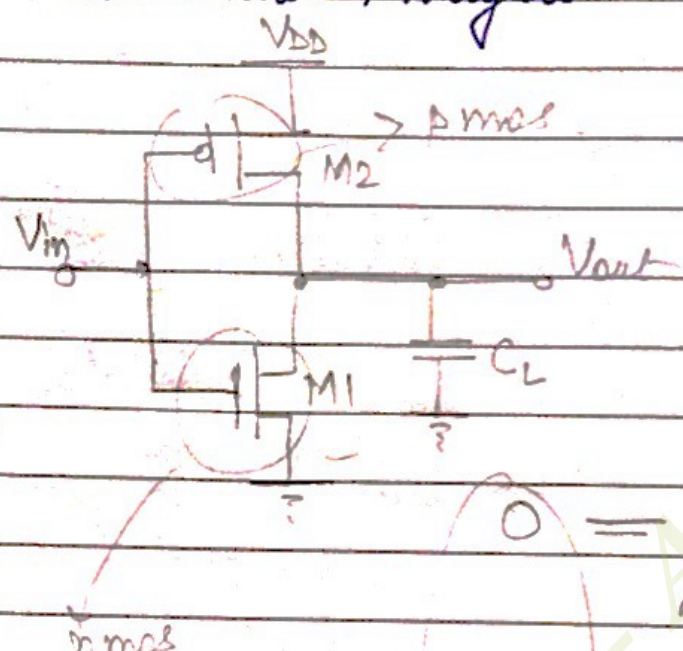 VDD
> pmos
M2
Vin
Vout
M1
CL
0 =
nmos